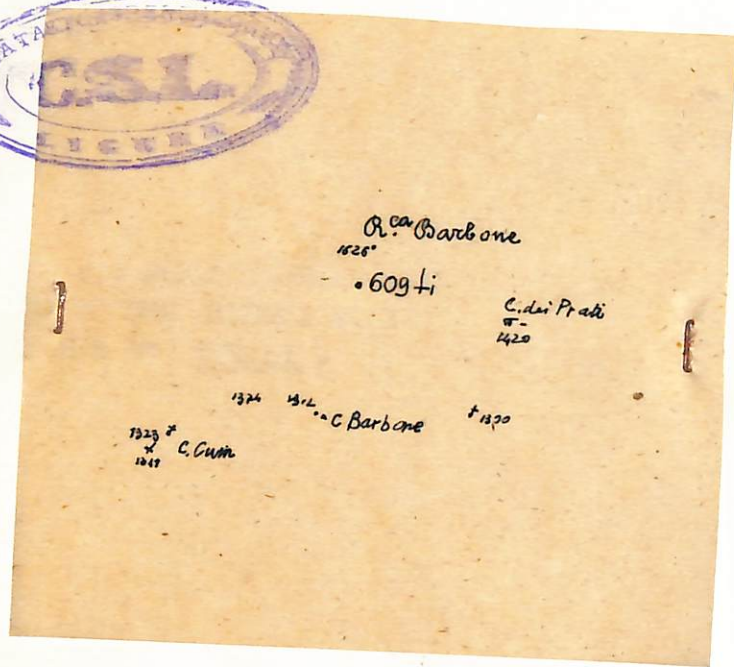 C.S.I.
LIGURE
R.ca Barbone
1626
609 Li
C. dei Prati
1420
1312
C Barbone
1323
C. Cuin